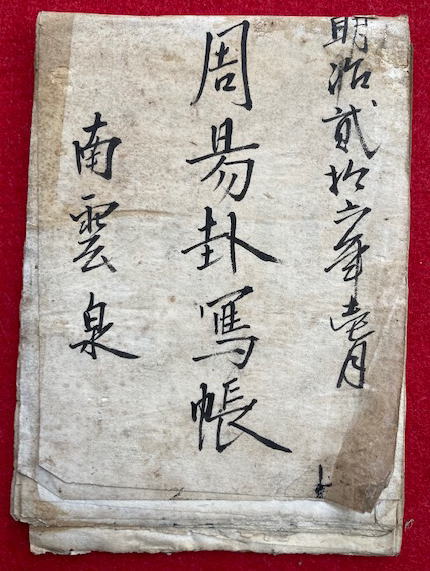 明治貳拾六年壱月
周易卦冩帳
南雲泉